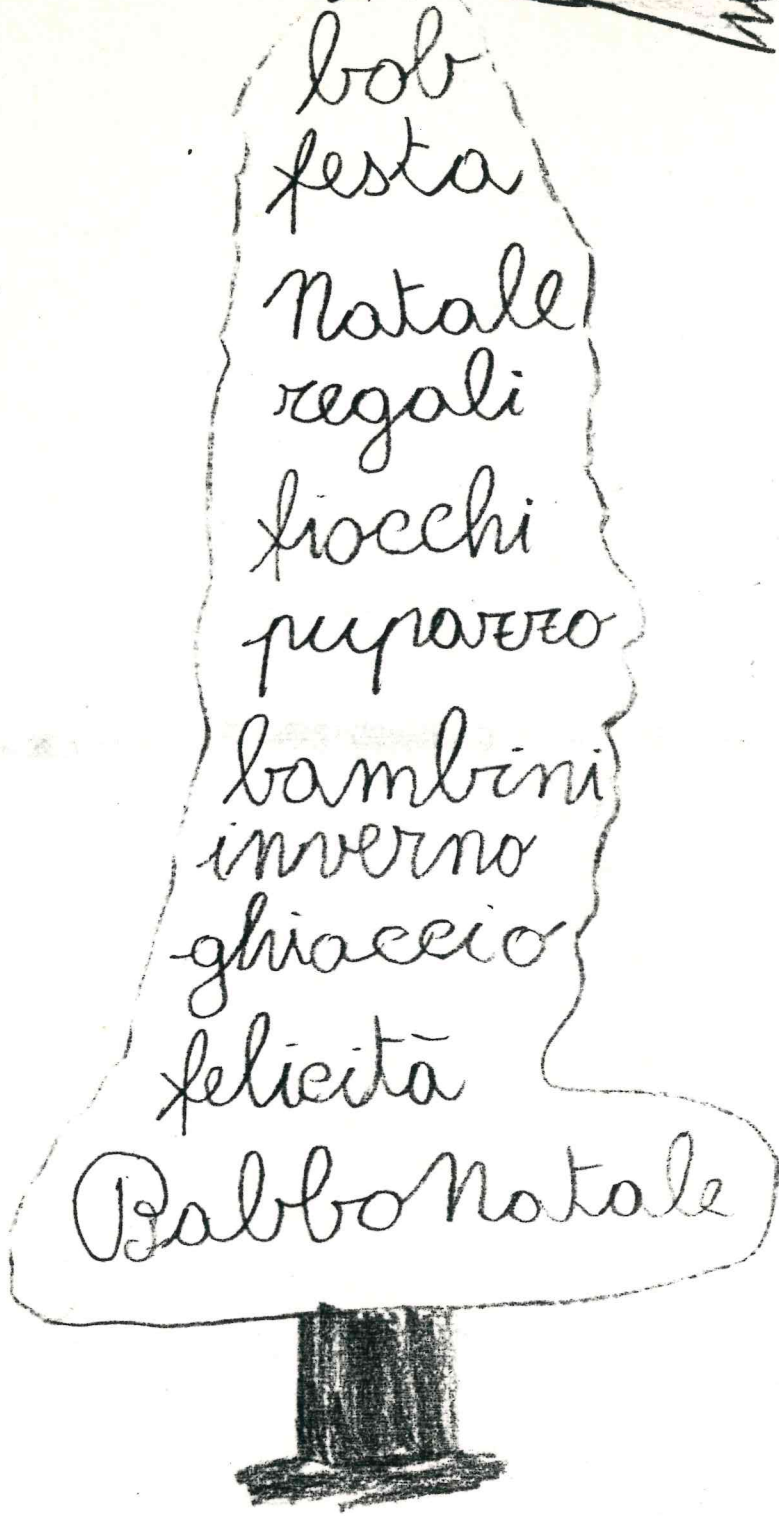 bob
festa
Natale
regali
fiocchi
pupazzo
bambini
inverno
ghiaccio
felicità
Babbo Natale